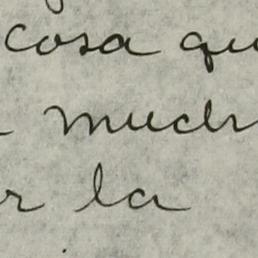 cosa qu
much
r la